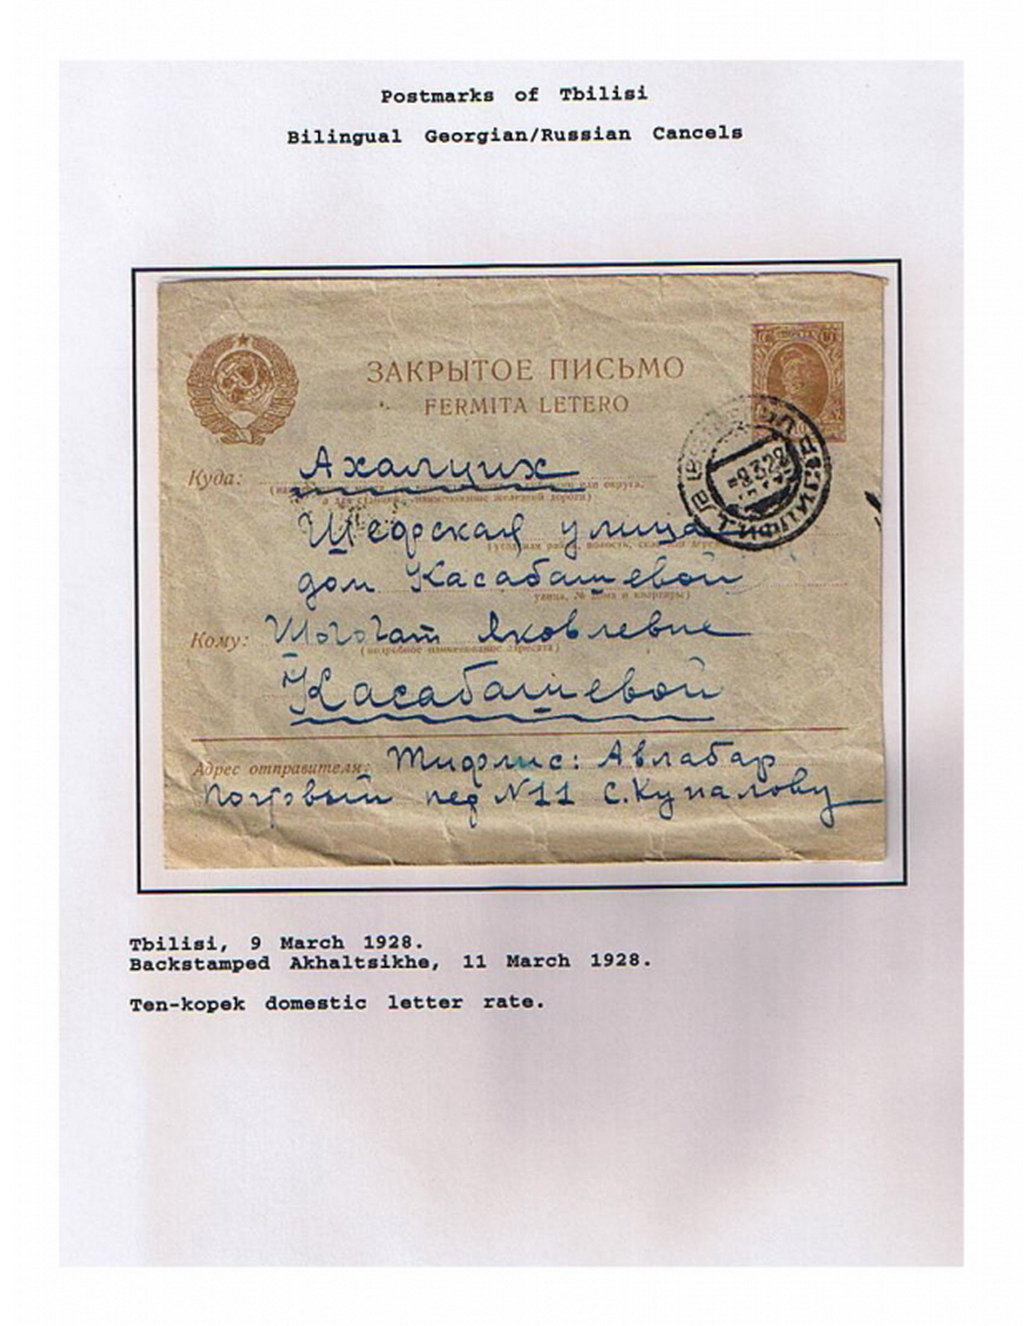 Postmarks of Tbilisi
Bilingual Georgian/Russian Cancels
ЗАКРЫТОЕ ПИСЬМО
FERMITA LETERO
Куда: Ахалцих
а для станций, наименование железной дороги)
улица
дом Касабашевой
улица, № дома и квартиры)
Кому: Шогогат Яковлевне
(подробное наименование адресата)
Касабашевой
Адрес отправителя: Тифлис: Авлабар
пер №11 С. Купалову
Tbilisi, 9 March 1928.
Backstamped Akhaltsikhe, 11 March 1928.
Ten-kopek domestic letter rate.